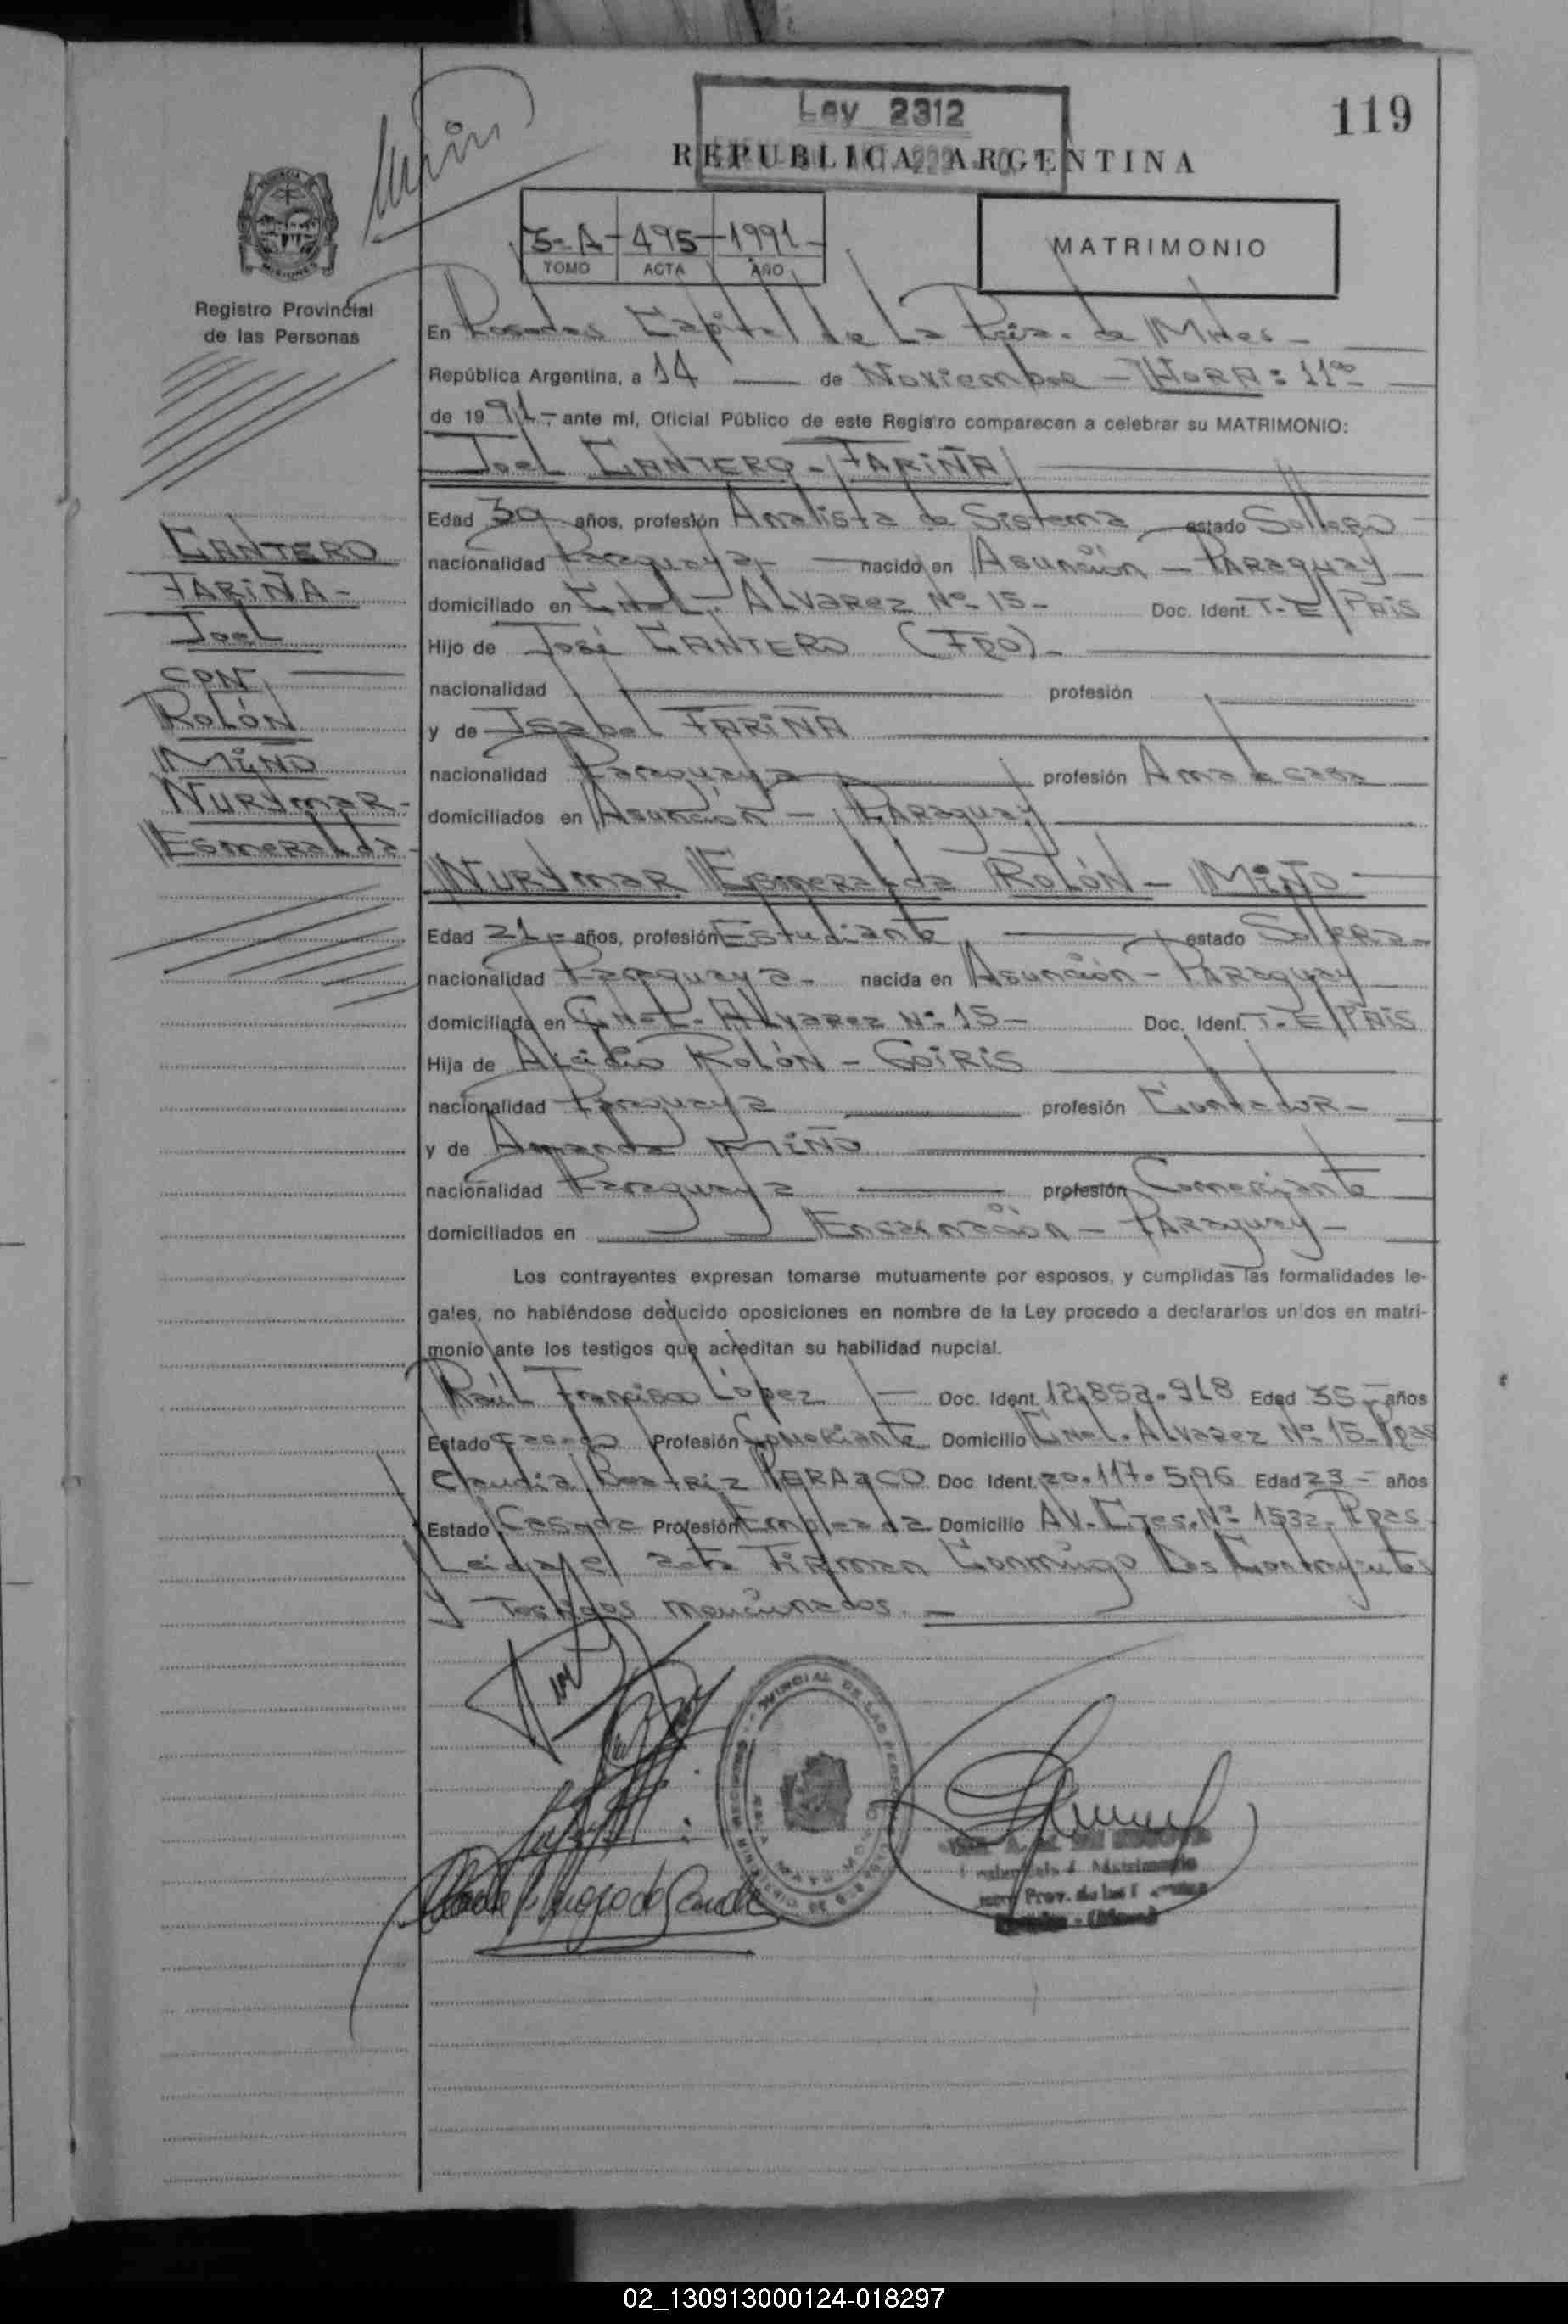 Ley 2312
119
REPUBLICA ARGENTINA
5-A-495-1991-
TOMO ACTA AÑO
MATRIMONIO
Registro Provincial
de las Personas
CANTERO
FARIÑA-
Joel
CON
ROLÓN
MIÑO
NURYMAR-
Esmeralda-
En Posadas Capital de La Pcia. de Mnes-
República Argentina, a 14 de Noviembre - HORA: 11
de 1991- ante mí, Oficial Público de este Registro comparecen a celebrar su MATRIMONIO:
Joel CANTERO-FARIÑA
Edad 39 años, profesión Analista de Sistema estado Soltero
nacionalidad Paraguaya nacido en Asunción - PARAguay
domiciliado en Cnel. Alvarez Nº 15- Doc. Ident. T-E/PAIS
Hijo de José CANTERO (Fdo)-
nacionalidad profesión
y de Isabel FARIÑA
nacionalidad Paraguaya profesión Ama de casa
domiciliados en Asunción - PARAguay
NURYMAR Esmeralda ROLÓN- MIÑO
Edad 21- años, profesión Estudiante estado Soltera-
nacionalidad Paraguaya- nacida en Asunción- PARAguay
domiciliada en Cnel- Alvarez Nº 15- Doc. Ident. T-E/PAIS
Hija de Alcidio ROLÓN - GOIRIS
nacionalidad Paraguaya profesión Contador-
y de Amanda MIÑO
nacionalidad Paraguaya profesión Comerciante
domiciliados en Encarnación - PARAguay-
Los contrayentes expresan tomarse mutuamente por esposos, y cumplidas las formalidades le-
gales, no habiéndose deducido oposiciones en nombre de la Ley procedo a declararlos unidos en matri-
monio ante los testigos que acreditan su habilidad nupcial.
Raúl Francisco López Doc. Ident. 12.852.918 Edad 35- años
Estado Casado Profesión Comerciante Domicilio Cnel. Alvarez Nº 15-Pdas
Claudia Beatriz Doc. Ident. 20.117.596 Edad 23- años
Estado Casada Profesión Empleada Domicilio AV. Nº 1532-Pdas
Leída el acta Firman Conmigo Los Contrayentes
y Testigos mencionados.-
02_130913000124-018297